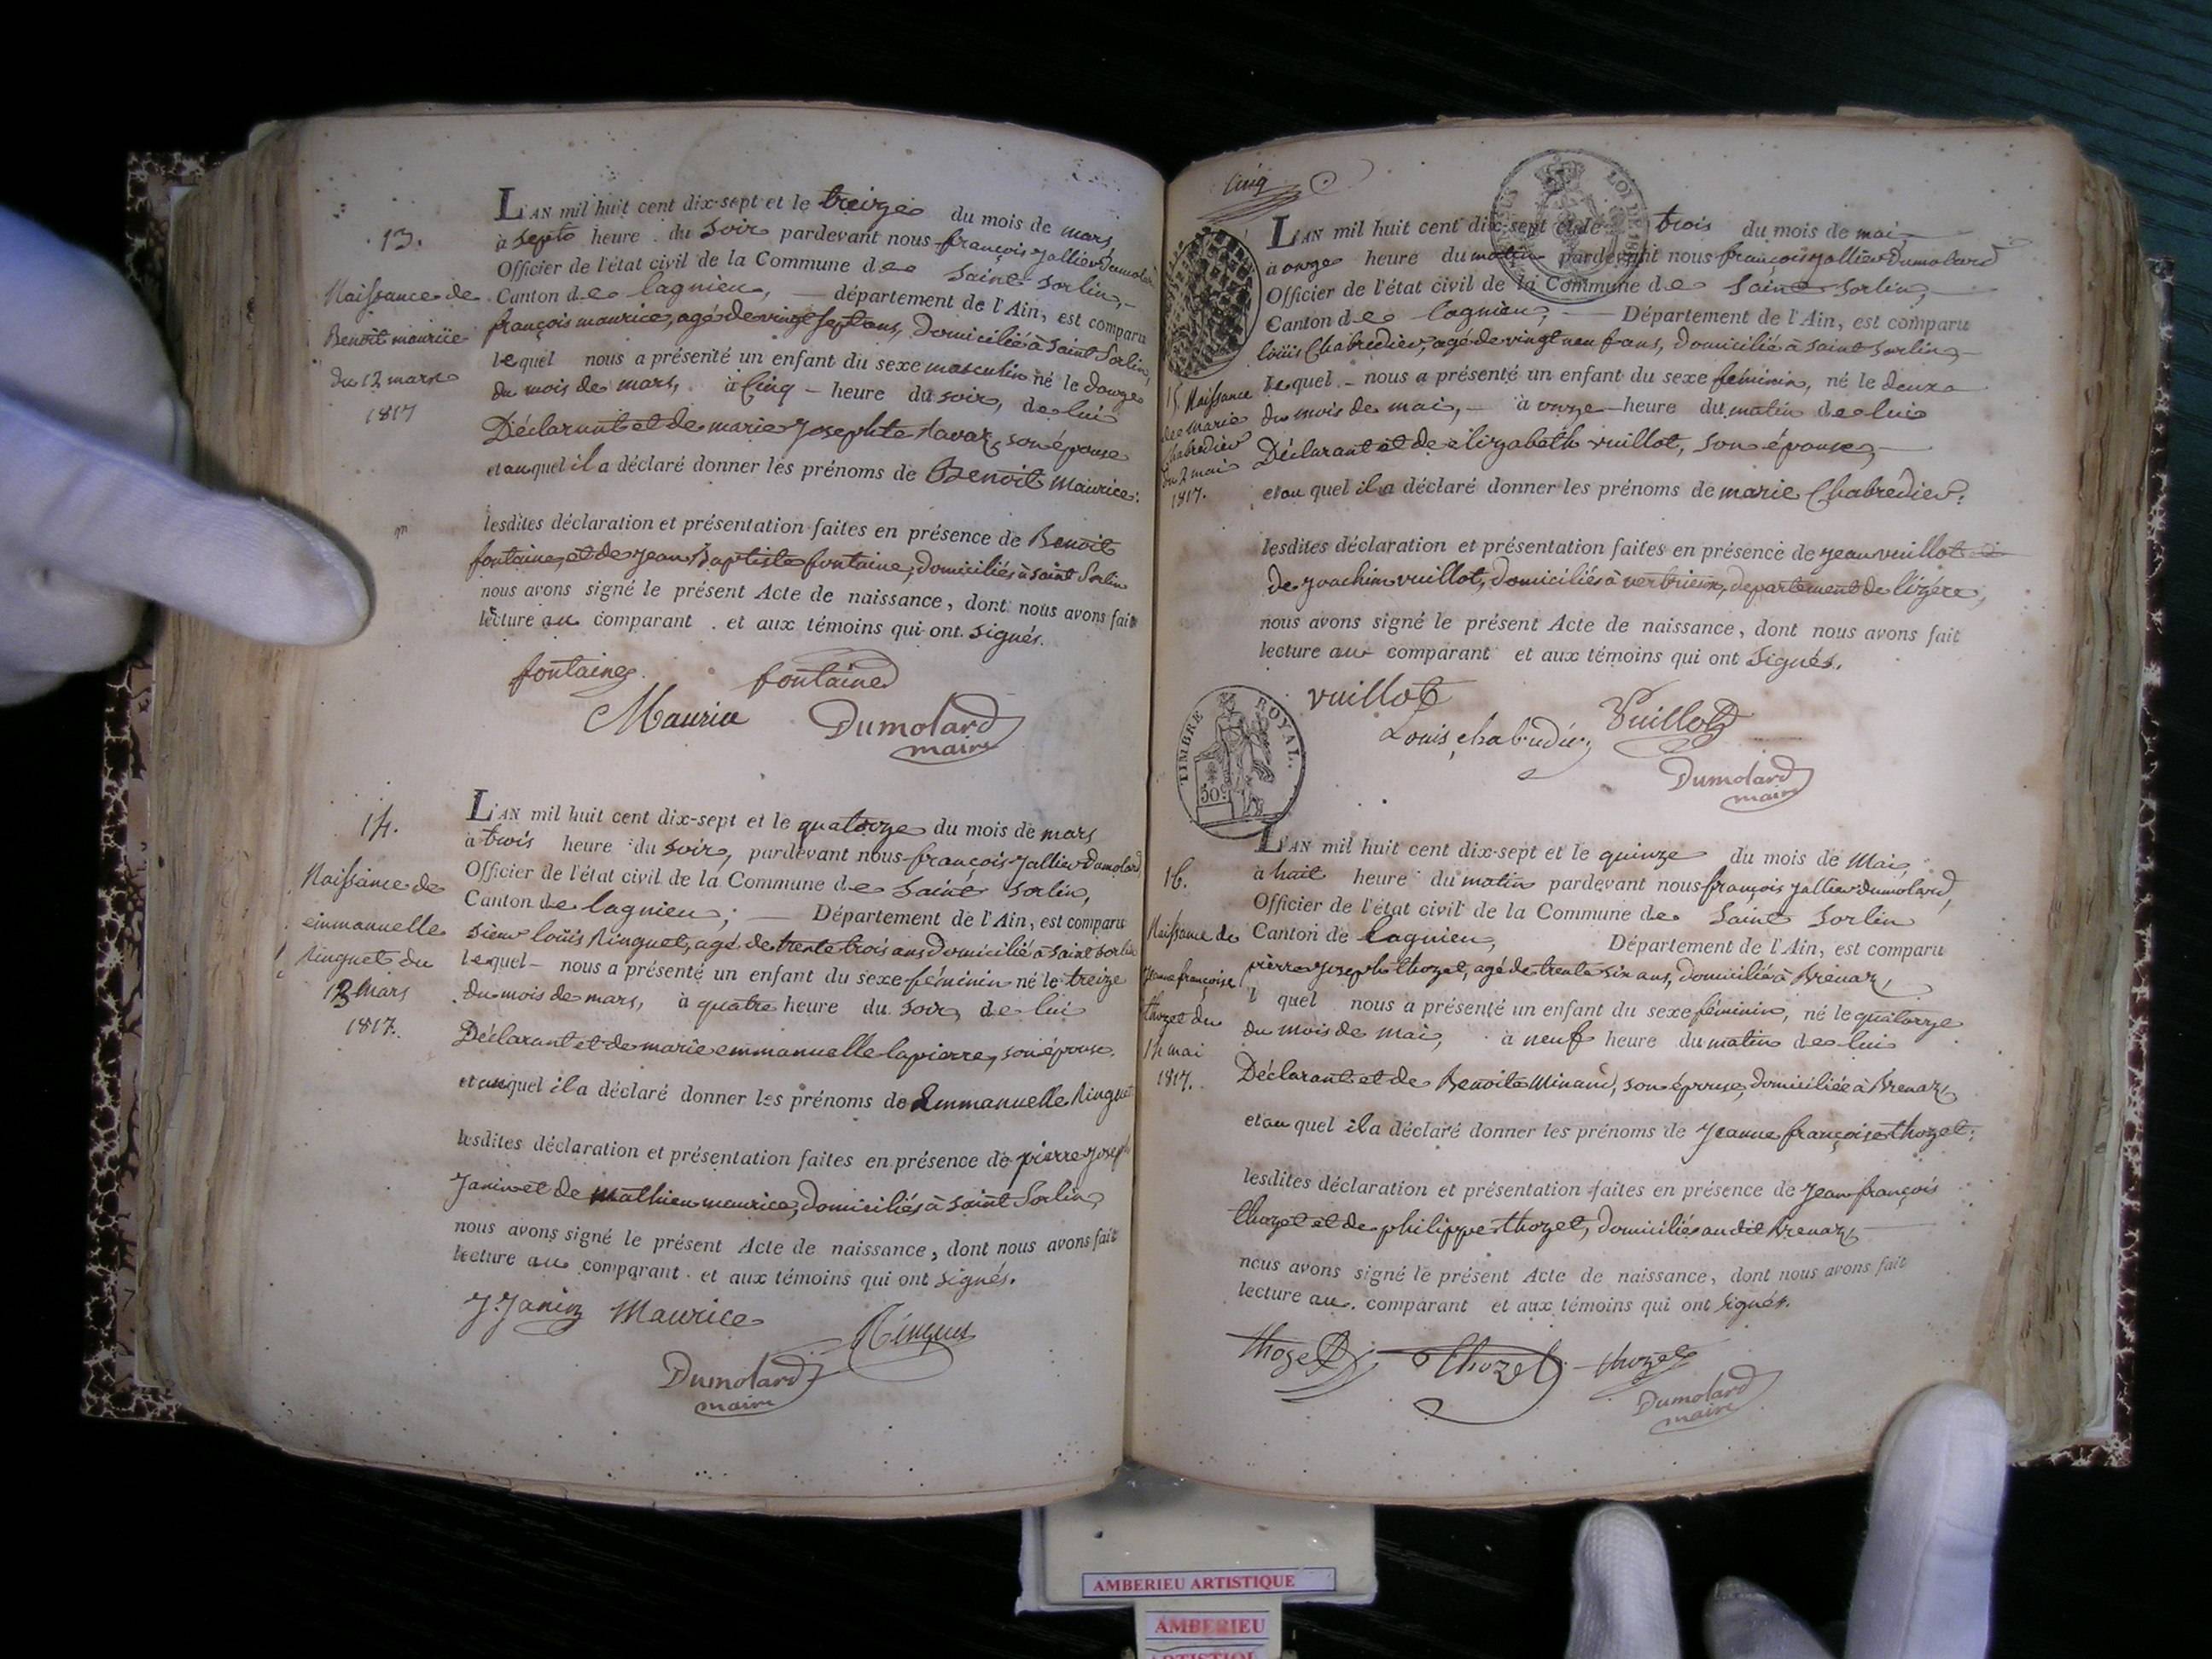 13.
Naissance de
Benoit maurice
du 12 mars
1817
L'AN mil huit cent dix-sept et le treize du mois de mars
à sept heure du soir pardevant nous françois jallier Dumolard
Officier de l'état civil de la Commune de Saint Sorlin,
Canton de lagnieu, département de l'Ain, est comparu
françois maurice, agé de vingt sept ans, Domicilié à Saint Sorlin,
lequel nous a présenté un enfant du sexe masculin né le douze
du mois de mars, à Cinq heure du soir, de lui
Déclarant et de marie josephte Navaz, son épouse
et auquel il a déclaré donner les prénoms de Benoit Maurice.
lesdites déclaration et présentation faites en présence de Benoit
fontaine, et de jean Baptiste fontaine, domiciliés à Saint Sorlin
nous avons signé le présent Acte de naissance, dont nous avons fait
lecture au comparant et aux témoins qui ont signés.
fontaine fontaine
Maurice Dumolard
maire
14.
Naissance de
emmanuelle
Ringuet du
13 Mars
1817.
L'AN mil huit cent dix-sept et le quatorze du mois de mars
à trois heure du soir, pardevant nous françois jallier Dumolard,
Officier de l'état civil de la Commune de Saint Sorlin,
Canton de lagnieu; Département de l'Ain, est comparu
sieur loüis Ringuet, agé de trente trois ans Domicilié à Saint Sorlin
lequel nous a présenté un enfant du sexe féminin né le treize
du mois de mars, à quatre heure du soir, de lui
Déclarant et de marie emmanuelle lapierre, son épouse.
et auquel il a déclaré donner les prénoms de Emmanuelle Ringuet
lesdites déclaration et présentation faites en présence de pierre joseph
Janin et de mathieu maurice, domiciliés à Saint Sorlin,
nous avons signé le présent Acte de naissance, dont nous avons fait
lecture au comparant et aux témoins qui ont signés.
J. Janin Maurice Ringuet
Dumolard
maire
Cinq
LOI DE
L'AN mil huit cent dix-sept et le trois du mois de mai,
à onze heure du matin pardevant nous françois jallier Dumolard
Officier de l'état civil de la Commune de Saint Sorlin,
Canton de lagnieu, Département de l'Ain, est comparu
loüis Chabredier, agé de vingt neuf ans, domicilié à Saint Sorlin,
lequel nous a présenté un enfant du sexe féminin, né le deux
du mois de mai, à onze heure du matin de lui
Déclarant et de élizabeth vuillot, son épouse,
et au quel il a déclaré donner les prénoms de marie Chabredier.
15. Naissance
de marie
Chabredier
du 2 mai
1817.
lesdites déclaration et présentation faites en présence de jean vuillot et
de joachim vuillot, domiciliés à vertrieux, departement de l'izère,
nous avons signé le présent Acte de naissance, dont nous avons fait
lecture au comparant et aux témoins qui ont Signés.
vuillot Vuillot
Louis chabredier
Dumolard
maire
TIMBRE ROYAL.
50c
16.
Naissance de
jeanne françoise
thozet du
14 mai
1817.
L'AN mil huit cent dix-sept et le quinze du mois de Mai,
à huit heure du matin pardevant nous françois jallier dumolard,
Officier de l'état civil de la Commune de Saint Sorlin
Canton de Lagnieu, Département de l'Ain, est comparu
pierre joseph thozet, agé de trente six ans, domicilié à Brenaz,
l quel nous a présenté un enfant du sexe féminin, né le quatorze
du mois de mai, à neuf heure du matin de lui
Déclarant et de Benoite Minand, son épouse, domiciliée à Brenaz,
et au quel il a déclaré donner les prénoms de Jeanne françoise thozet.
lesdites déclaration et présentation faites en présence de Jean françois
thozet et de philippe thozet, domiciliés au dit Brenaz,
nous avons signé le présent Acte de naissance, dont nous avons fait
lecture au comparant et aux témoins qui ont signés.
thozet thozet thozet
Dumolard
maire
AMBERIEU ARTISTIQUE
AMBERIEU
ARTISTIQUE